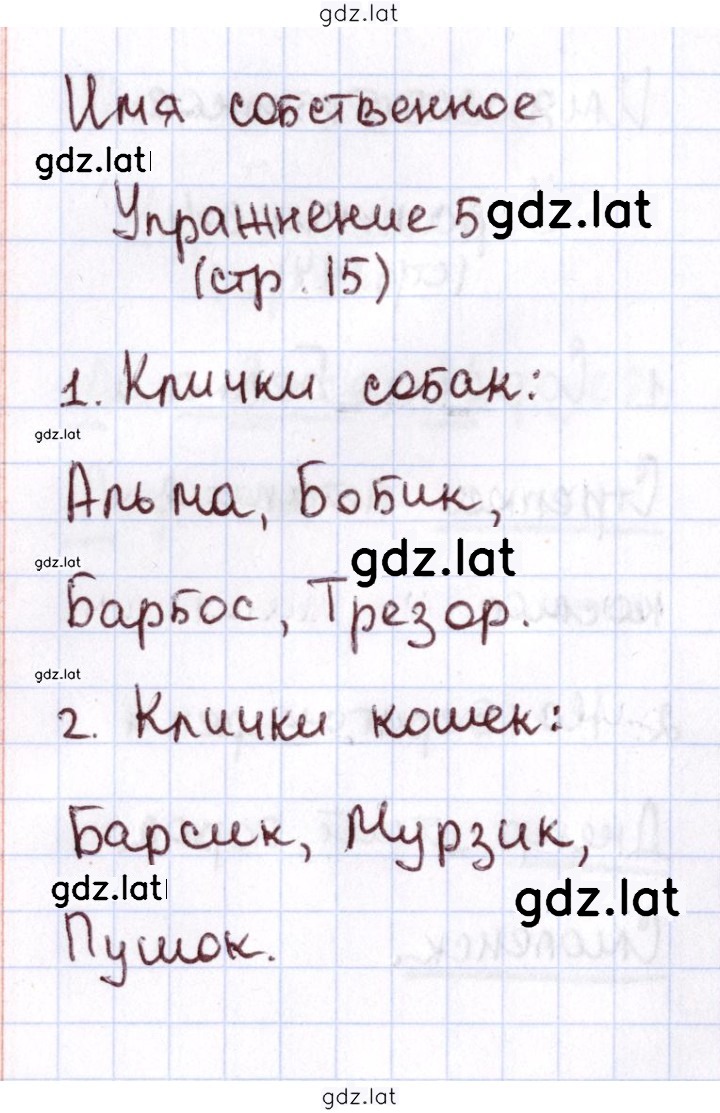 gdz.lat
Имя собственное
gdz.lat
Упражнение 5 gdz.lat
(стр. 15)
1. Клички собак:
gdz.lat
Альма, Бобик,
gdz.lat gdz.lat
Барбос, Трезор.
gdz.lat
2. Клички кошек:
Барсик, Мурзик,
gdz.lat gdz.lat
Пушок.
gdz.lat